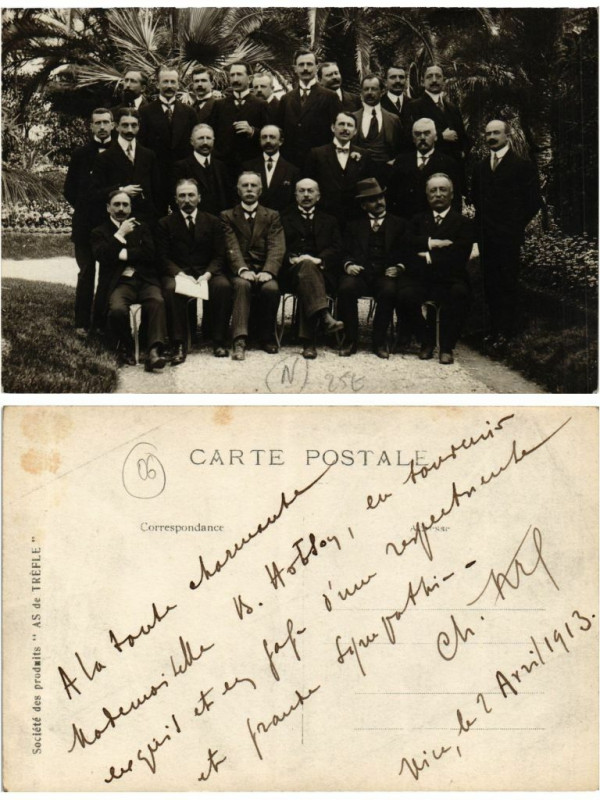 (N) 25E
06
CARTE POSTALE
Correspondance
Société des produits " AS de TRÈFLE "
A la toute charmante
Mademoiselle B. Hobson, en souvenir
exquis et en gage d'une respectueuse
et grande sympathie
Ch.
Nice, le 2 Avril 1913.